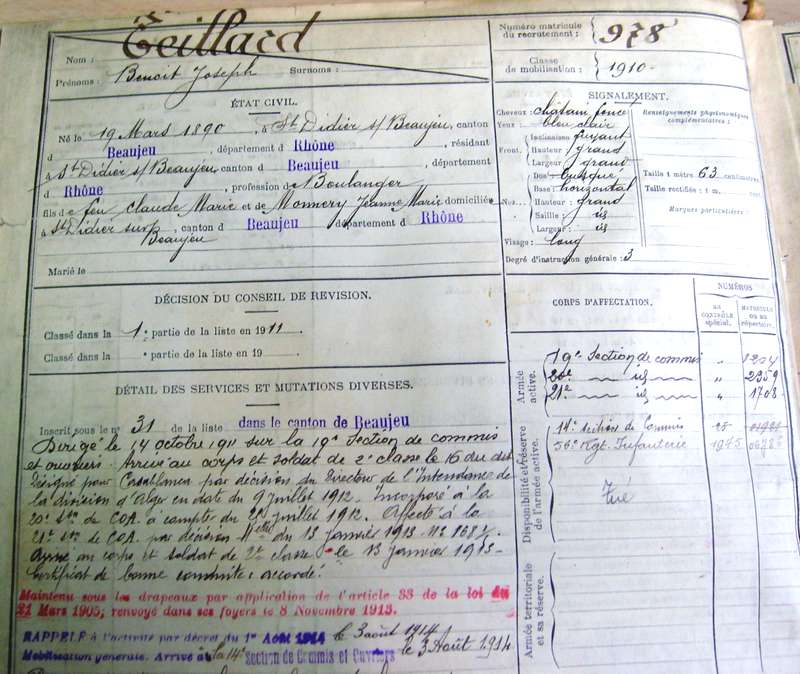 Nom : Teillard
Prénoms : Benoit Joseph Surnoms :
Numéro matricule du recrutement : 978
Classe de mobilisation : 1910
ÉTAT CIVIL.
Né le 19 Mars 1890, à St Didier s/Beaujeu, canton
d Beaujeu, département d Rhône, résidant
à St Didier s/Beaujeu, canton d Beaujeu, département
d Rhône, profession d Boulanger
fils de feu Claude Marie et de Monnery Jeanne Marie domiciliés
à St Didier sur Beaujeu, canton d Beaujeu département d Rhône
Marié le
SIGNALEMENT.
Cheveux : châtain foncé
Yeux : bleu clair
Front. Inclinaison : fuyant
Hauteur : grand
Largeur : grand
Nez. Dos : busqué
Base : horizontal
Hauteur : grand
Saillie : id
Largeur : id
Visage : long
Renseignements physionomiques complémentaires :
Taille 1 mètre 63 centimètres
Taille rectifiée : 1 m.
Marques particulières :
Degré d'instruction générale : 3
DÉCISION DU CONSEIL DE REVISION.
Classé dans la 1e partie de la liste en 1911
Classé dans la e partie de la liste en 19
DÉTAIL DES SERVICES ET MUTATIONS DIVERSES.
Inscrit sous le n° 31 de la liste dans le canton de Beaujeu
Dirigé le 14 octobre 1911 sur la 19e Section de commis
et ouvriers. Arrivé au corps et soldat de 2e classe le 16 du dit
Désigné pour Casablanca par décision du Directeur de l'Intendance de
la division d'Alger en date du 9 juillet 1912. Incorporé à la
20e son de COA à compter du juillet 1912. Affecté à la
21e son de COA par décision Melle du 13 janvier 1913. No 868
Arrivé au corps et soldat de 2e classe le 13 janvier 1913
Certificat de bonne conduite : accordé.
Maintenu sous les drapeaux par application de l'article 33 de la loi du
21 Mars 1905; renvoyé dans ses foyers le 8 Novembre 1913.
RAPPELÉ à l'activité par décret du 1er Août 1914 le 3 août 1914
Mobilisation générale. Arrivé à la 14e Section de Commis et Ouvriers le 3 Août 1914
CORPS D'AFFECTATION.
NUMÉROS
au contrôle spécial.
matricule ou au répertoire.
Armée active.
19e Section de commis " 1204
20e — id — " 2359
21e — id — " 1708
Disponibilité et réserve de l'armée active.
14e section de Commis
56e Rgt. Infanterie
Tué
Armée territoriale et sa réserve.